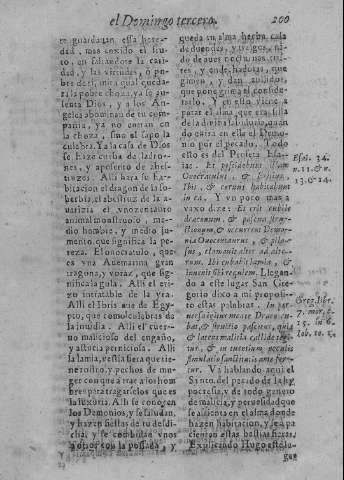 el Domingo tercero. 200
te guardaràn essa here-
dad, mas coxido el fru-
to, en faltandote la cari-
dad, y las virtudes, ò po-
bre de ti, mira qual queda-
rà la pobre choza, ya se au-
senta Dios, y a los An-
geles abominan de tu com-
pañia, ya no entran en
la choza, sino el sapo la
culebra. Ya la casa de Dios
se haze cueba de ladro-
nes, y aposento de abes-
truzes. Alli hara se ha-
bitacion el dragon de la so-
berbia, el abestruz de la a-
uaricia el onocentauro
animal monstruoso, me-
dio hombre, y medio ju-
mento, que significa la pe-
reza. El onocratulo, que
es vna Aue marina gran
tragona, y voraz, que sig-
nifica la gula. Alli el eri-
zo irritable de la yra.
Alli el Ibis aue de Egyp-
to, que come culebras de
la inuidia. Alli el cuer-
uo malicioso del engaño,
y astucia perniciosa. Alli
la lamia, vestia fiera que tie-
ne rostro, y pechos de mu-
ger con que atrae a los hom
bres para tragarselos que es
la luxuria. Alli se conocen
los Demonios, y se saludan,
y hazen fiestas de tu desdi-
cha, y se combidan vnos
a otros con la possada, y
queda tu alma hecha casa
de duendes, y trasgos, ni-
do de aues nocturnas, tris-
tes, y endechadoras, que
gimen, y dan aullidos,
que pone grima el conside-
rarlo. Y en esto viene a
parar el alma, que era silla
de la diuina Sabiduria, quan
do entra en ella el Demo-
nio por el pecado. Todo
esto es del Profeta Esa-
ias: Et possidebunt illam
Onocratulus, & Ericius,
Ibis, & coruus habitabunt
in ea. Y vn poco mas a
vaxo dize: Et erit cubile
draconum, & pascua stru-
thionum, & occurrent Demo-
nia Onocentauros, & pilo-
sus, clamauit alter ad alte-
rum. Ibi cubauit lamia, &
inuenit sibi requiem. Llegando
a este lugar San Gre-
gorio dixo a mi proposi-
to estas palabras. In per-
uersa igitur mente Draco cu-
bat, & struthio pascitur, quia
& latens malitia callidè tegi-
tur, & in intuitum oculis
simulatio sanctitatis ante fer-
tur. Va hablando aqui el
Santo, del pecado de la hy
pocresia, y de todo genero
de malicia, y peruersidad que
se assienta en el alma donde
hazen habitacion, y se apa
cientan estas bestias fieras.
Explicando Hugo este lu-
gar
Esai. 34.
n. 11. & n.
13. & 14.
Greg. libr.
7. mor. c.
15. in c.
Iob. 10. 5.